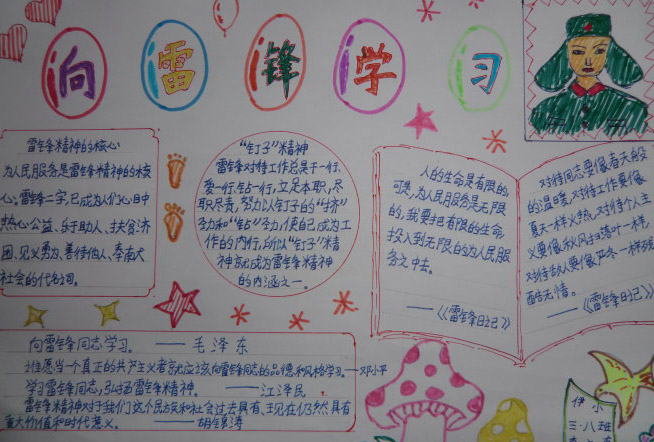 向雷锋学习
雷锋精神的核心
为人民服务是雷锋精神的核
心,雷锋二字,已成为人们心目中
热心公益、乐于助人、扶贫济
困、见义勇为、善待他人、奉献
社会的代名词。
"钉子"精神
雷锋对待工作总是干一行、
爱一行、钻一行,立足本职,尽
职尽责,努力以钉子的"挤"
劲和"钻"劲,使自己成为工
作的内行,所以"钉子"精
神就成为雷锋精神
的内涵之一。
人的生命是有限的,
可是,为人民服务是无限
的,我要把有限的生命,
投入到无限的为人民服
务之中去。
——《雷锋日记》
对待同志要像春天般
的温暖,对待工作要像
夏天一样火热,对待个人主
义要像秋风扫落叶一样,
对待敌人要像严冬一样残
酷无情。
——《雷锋日记》
向雷锋同志学习。——毛泽东
谁愿当一个真正的共产主义者就应该向雷锋同志的品德和风格学习。——邓小平
学习雷锋同志,弘扬雷锋精神。——江泽民
雷锋精神对于我们这个民族和社会过去具有、现在仍然具有
重大价值和时代意义。——胡锦涛
伊小
三·八班